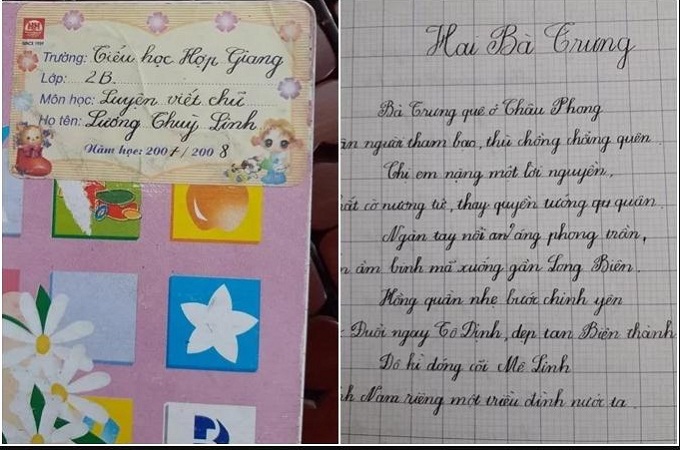 HH
SINCE 1991
Trường: Tiểu học Hợp Giang
Lớp: 2B
Môn học: Luyện viết chữ
Họ tên: Lương Thuỳ Linh
Năm học: 2007/2008
Hai Bà Trưng
Bà Trưng quê ở Châu Phong
người tham bạo, thù chồng chẳng quên.
Chị em nặng một lời nguyền,
cờ nương tử, thay quyền tướng quân.
Ngàn tay nổi áng phong trần,
ầm binh mã xuống gần Long Biên.
Hồng quần nhẹ bước chinh yên
Đuổi ngay Tô Định, dẹp tan Biên thành
Đô kì đóng cõi Mê Linh
Nam riêng một triều đình nước ta.